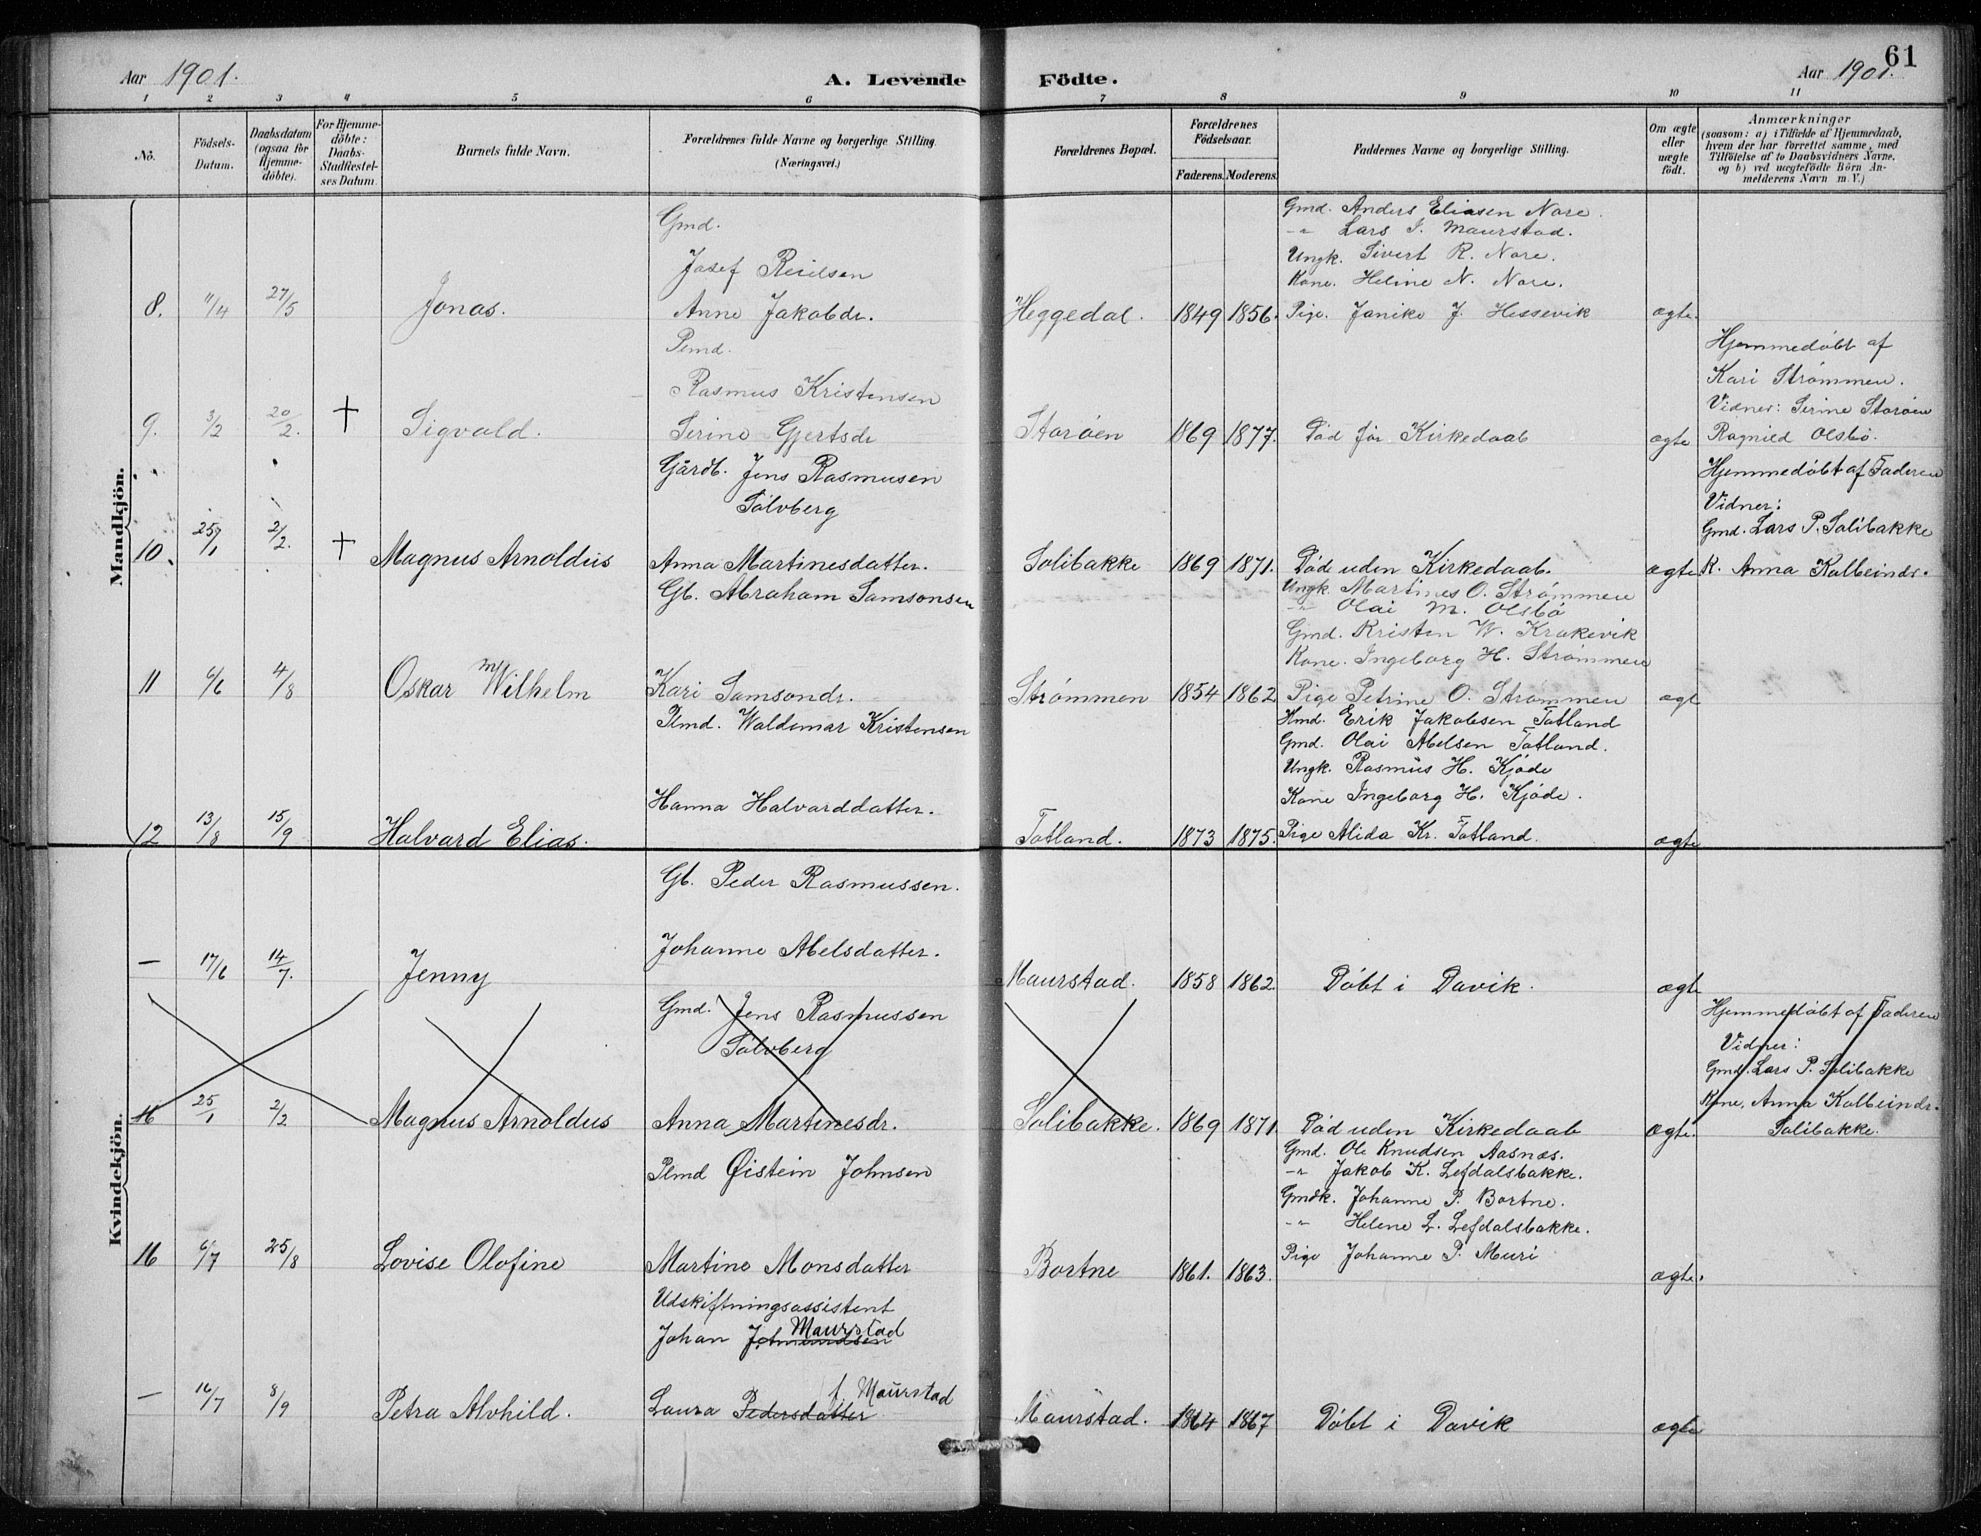 61
Aar 1901.
A. Levende Födte.
Aar 1901.
1 2 3 4 5 6 7 8 9 10 11
No.
Födsels-Datum.
Daabsdatum (ogsaa for Hjemme-döbte).
For Hjemme-döbte: Daabs-Stadfæstel-ses Datum.
Barnets fulde Navn.
Forældrenes fulde Navne og borgerlige Stilling.
(Næringsvei.)
Forældrenes Bopæl.
Forældrenes Födselsaar.
Faderens. Moderens.
Faddernes Navne og borgerlige Stilling.
Om ægte eller uægte födt.
Anmærkninger
(saasom: a) i Tilfælde af Hjemmedaab,
hvem der har forrettet samme, med
Tilföielse af to Daabsvidners Navne,
og b) ved uægtefödte Börn An-
melderens Navn m. V.)
Mandkjön.
Gmd.
Josef Reielsen
8. 11/4 27/5 Jonas. Anne Jakobdr. Heggedal. 1849 1856. ægte.
Gmd. Anders Eliasen Nore.
-"- Lars S. Maurstad.
Ungk. Sivert R. Nore.
Kone. Heline N. Nore.
Pige. Janike J. Hessevik
Plmd.
Rasmus Kristensen
9. 3/2 20/2. † Sigvald. Serine Gjertsdr Storøen 1869 1877. Død før Kirkedaab ægte
Hjemmedøbt af
Kari Strømmen.
Vidner: Serine Storøen
Ragnild Olsbö.
Gårdb. Jens Rasmusen
Sølvberg
10. 25/1 2/2. † Magnus Arnoldus Anna Martinesdatter. Solibakke 1869 1871. Død uden Kirkedaab. ægte
Hjemmedøbt af Faderen
Vidner:
Gmd. Lars P. Solibakke
K. Anna Kolbeindr.
Gb. Abraham Samsonsen
11 6/6 4/8 Oskar Wilhelm m Kari Samsondr. Strømmen 1854 1862 ægte
Ungk. Martines O. Strømmen
-"- Olai M. Olsbö
Gmd. Kristen W. Krakevik
Kone. Ingeborg H. Strømmen
Pige Petrine O. Strømmen
Plmd. Waldemar Kristensen
Hanna Halvarddatter.
12 13/8 15/9 Halvard Elias. Totland. 1873 1875. ægte
Hmd. Erik Jakobsen Totland
Gmd. Olai Abelsen Totland.
Ungk. Rasmus H. Kjøde
Kone Ingeborg H. Kjøde.
Pige Alida Kr. Totland.
Kvindekjön.
Gb. Peder Rasmussen.
Johanne Abelsdatter.
— 17/6 14/7. Jenny Maurstad. 1858 1862. Døbt i Davik. ægte
Gmd. Jens Rasmussen
Sølvberg
16 25/1 2/2 Magnus Arnoldus Anna Martinesdr. Solibakke. 1869 1871. Død uden Kirkedaab ægte.
Hjemmedøbt af Faderen
Vidner:
Gmd. Lars P. Solibakke
Kone, Anna Kolbeindr.
Solibakke.
Plmd Øistein Johnsen
16 6/7 25/8 Lovise Olofine Martine Monsdatter Bortne 1861. 1863. ægte.
Gmd. Ole Knudsen Aasnæs.
-"- Jakob K. Lefdalsbakke.
Gmdk. Johanne P. Bortne.
-"- Helene L. Lefdalsbakke.
Pige Johanne P. Muri
Udskiftningsassistent
Johan Maurstad
— 16/7 8/9 Petra Alvhild. Laura Pedersdatter f. Maurstad Maurstad. 1864 1867 Døbt i Davik ægte